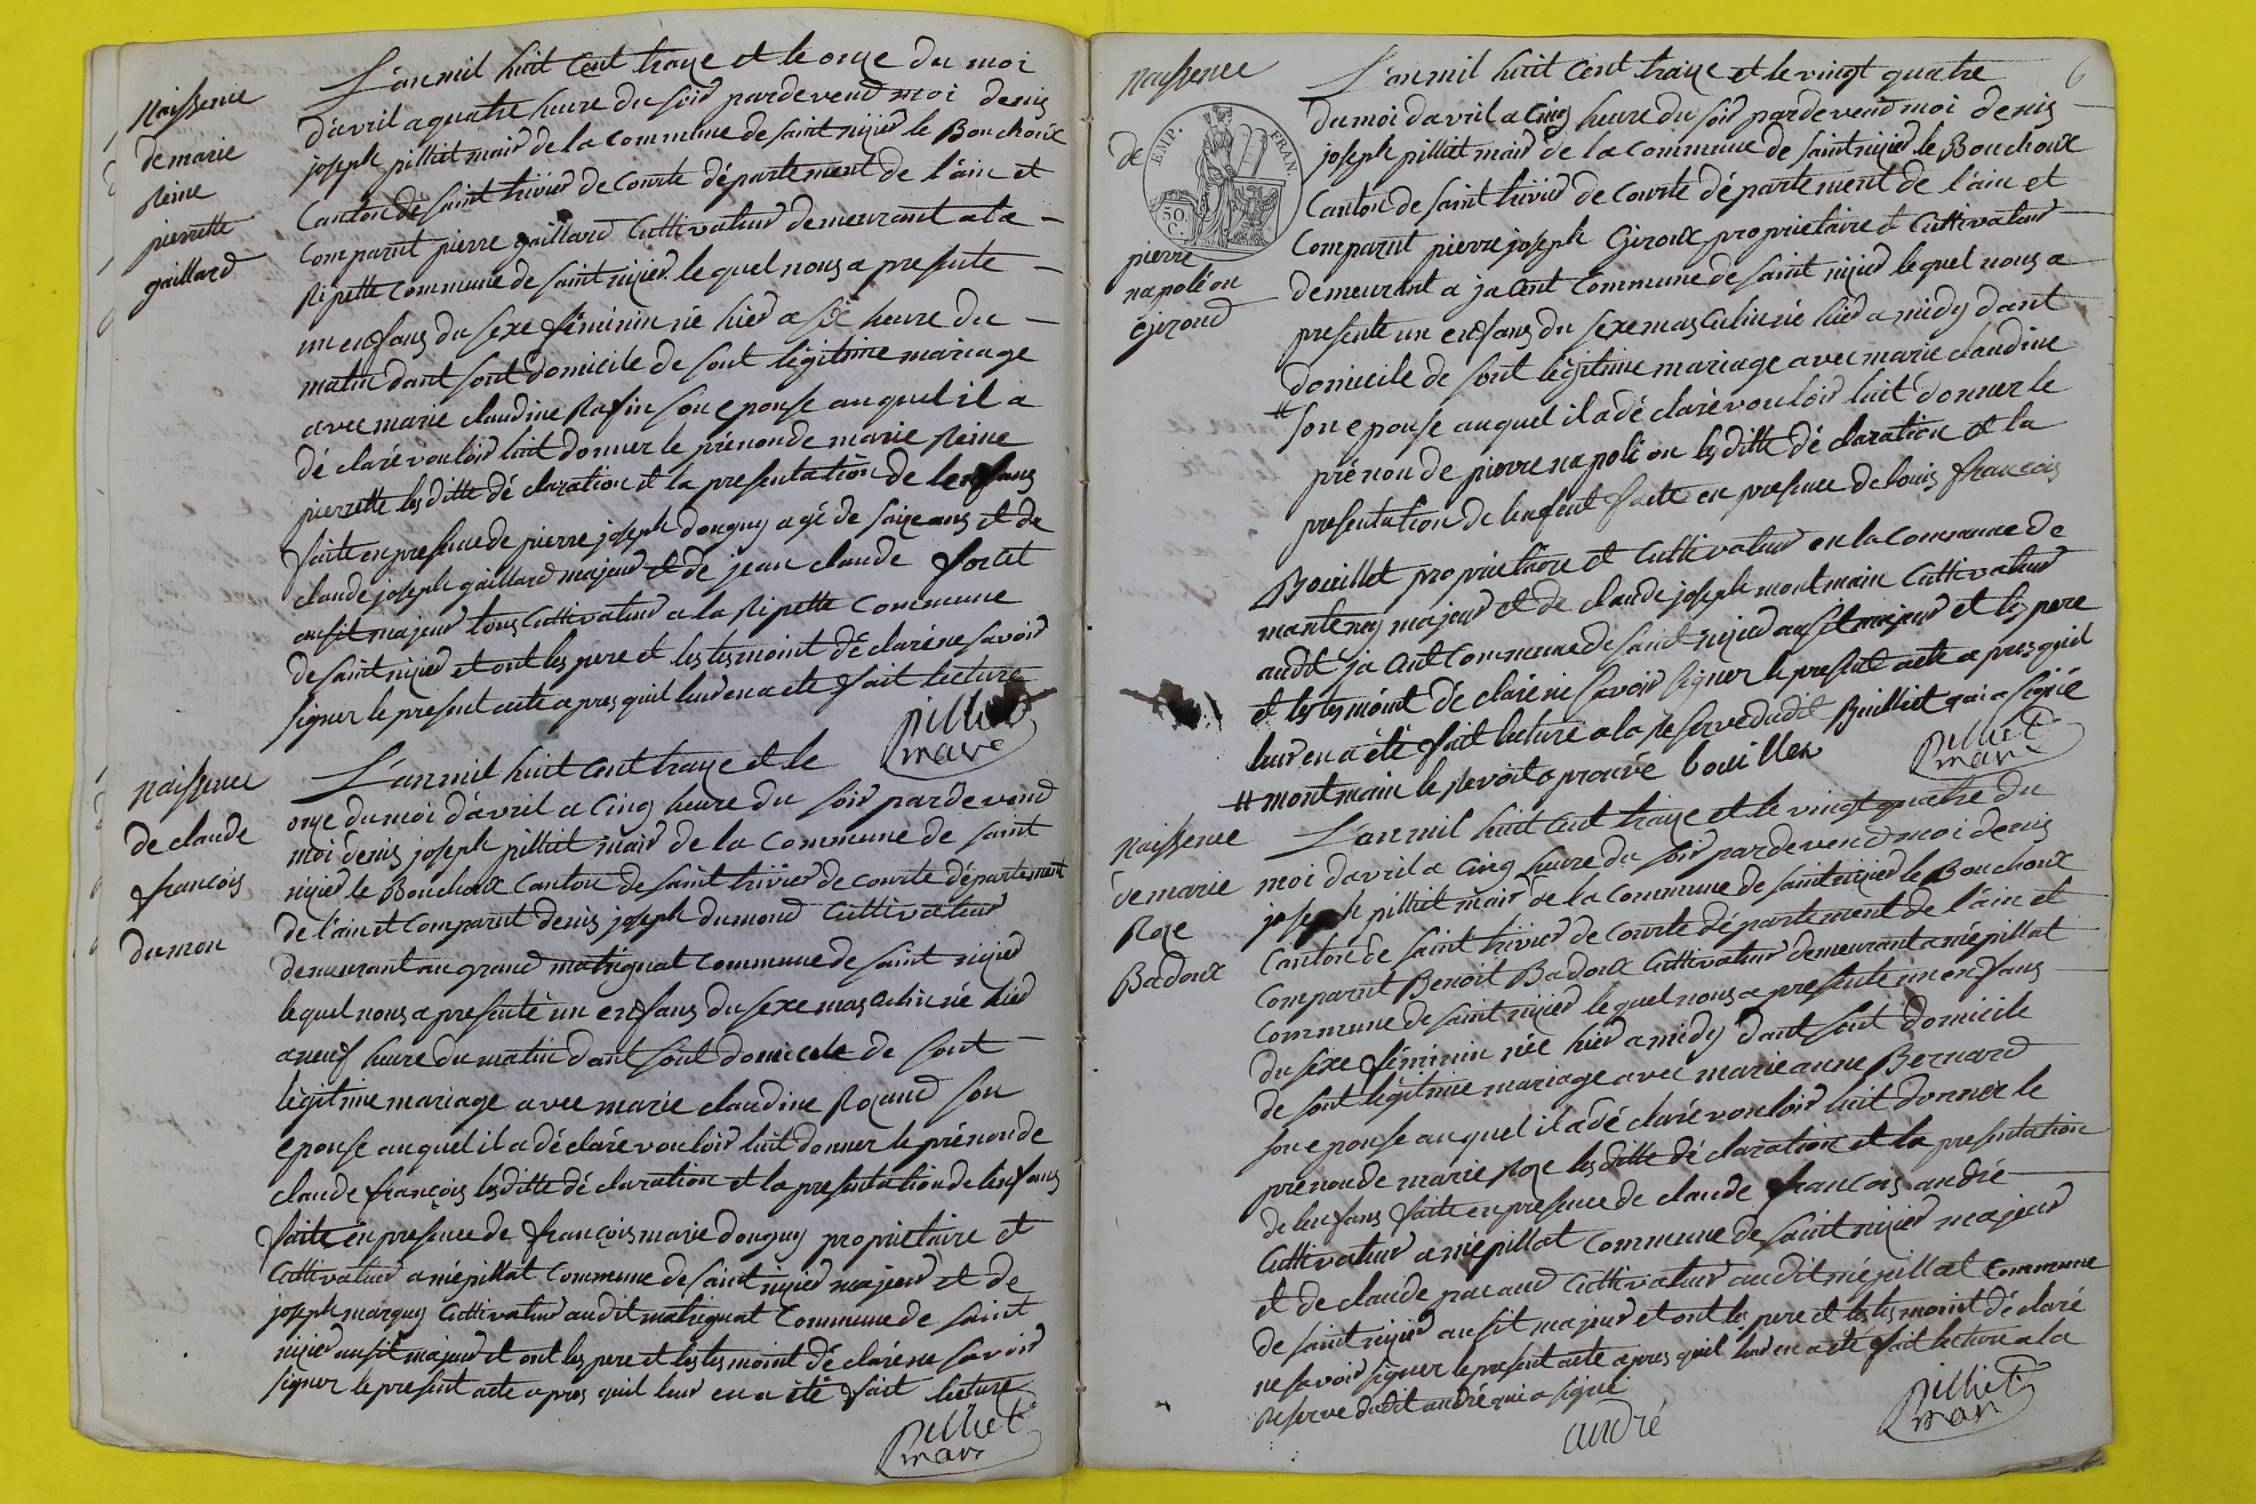 Naissence
de marie
Reine
pierrette
gaillard
L'an mil huit Cent traize et le onze du moi
d'avril a quatre heure du soir pardevend moi denis
joseph pilliet mair de la Commune de saint nizier le Bouchoux
Canton de saint trivier de Courte département de l'ain et
Comparut pierre gaillard Cuttivateur demeurant a la
Ripette Commune de saint nizier lequel nous a presente
un enfans du sexe féminin né hier a six heure du
matin dant sont domicile de sont légitime mariage
avec marie claudine Rafin son epouse auquel il a
déclaré vouloir luit donner le prénon de marie Reine
pierrette les ditte déclaration et la presentation de lenfans
faite en presence de pierre joseph donguy agé de saize ans et de
claude joseph gaillard majeur et de jean claude foret
ausit majeur tous Cuttivateur a la Ripette Commune
de saint nizier et ont les pere et les tesmoint déclaré ne savoir
signer le present acte apres quil leur en a ete fait lecture
pilliet
mair
Naissence
de claude
françois
dumon
L'an mil huit Cent traize et le
onze du moi d'avril a Cinq heure du soir pardevend
moi denis joseph pilliet mair de la Commune de saint
nizier le Bouchoux Canton de saint trivier de Courte département
de l'ain et Comparut denis joseph dumond Cuttivateur
demeurant au grand matrignat Commune de saint nizier
lequel nous a presenté un enfans du sexe masculin né hier
a neuf heure du matin dant sont domicele de sont
légitime mariage avec marie claudine Rozand son
epouse auquel il a déclaré vouloir luit donner le prénon de
claude françois les ditte déclaration et la presentation de lenfans
faite en presence de françois marie donguy proprietaire et
Cuttivateur a mépillat Commune de saint nizier majeur et de
joseph marguy Cuttivateur audit matrignat Commune de saint
nizier ausit majeur et ont les pere et les tesmoint déclaré ne savoir
signer le present acte apres quil leur en a été fait lecture
pilliet
mair
6
Naissence
de
EMP. FRAN.
50
C.
pierre
napoléon
Giroud
L'an mil huit Cent traize et le vingt quatre
du moi davril a Cinq heure du soir pardevend moi denis
joseph pilliet mair de la Commune de saint nizier le Bouchoux
Canton de saint trivier de Courte département de l'ain et
Comparut pierre joseph Giroux proprietaire et Cuttivateur
demeurant a jacent Commune de saint nizier lequel nous a
presente un enfans du sexe masculin né hier a midy dant
domicile de sont légitime mariage avec marie claudine
# son epouse auquel il a déclaré vouloir luit donner le
prénon de pierre napoléon les ditte déclaration et la
presentation de lenfent faite en presence de louis françois
Bouillet proprietaire et Cuttivateur en la Commune de
mantenay majeur et de claude joseph montmain Cuttivateur
audit jacent Commune de saint nizier ausit majeur et les pere
et les tesmoint déclaré ne savoir signer le present acte apres quil
leur en a été fait lecture a la reserve dudit Buillet qui a signé
# montmain le revoit aprouvé bouillex
pilliet
mair
Naissence
de marie
Roze
Badoux
L'an mil huit Cent traize et le vingt quatre du
moi davril a Cinq heure du soir pardevend moi denis
joseph pilliet mair de la Commune de saint nizier le Bouchoux
Canton de saint trivier de Courte département de l'ain et
Comparut Benoit Badoux Cuttivateur demeurant a mépillat
Commune de saint nizier lequel nous a presente un enfans
du sexe féminin née hier a midy dant sont domicile
de sont légitime mariage avec marie anne Bernard
son epouse auquel il a déclaré vouloir luit donner le
prénon de marie Roze les ditte déclaration et la presentation
de lenfans faite en presence de claude françois andré
Cuttivateur a mépillat Commune de saint nizier majeur
et de claude pacaud Cuttivateur audit mépillat Commune
de saint nizier ausit majeur et ont les pere et les tesmoint déclaré
ne savoir signer le present acte apres quil leur en a été fait lecture a la
reserve dudit andré qui a signé
andré
pilliet
mair